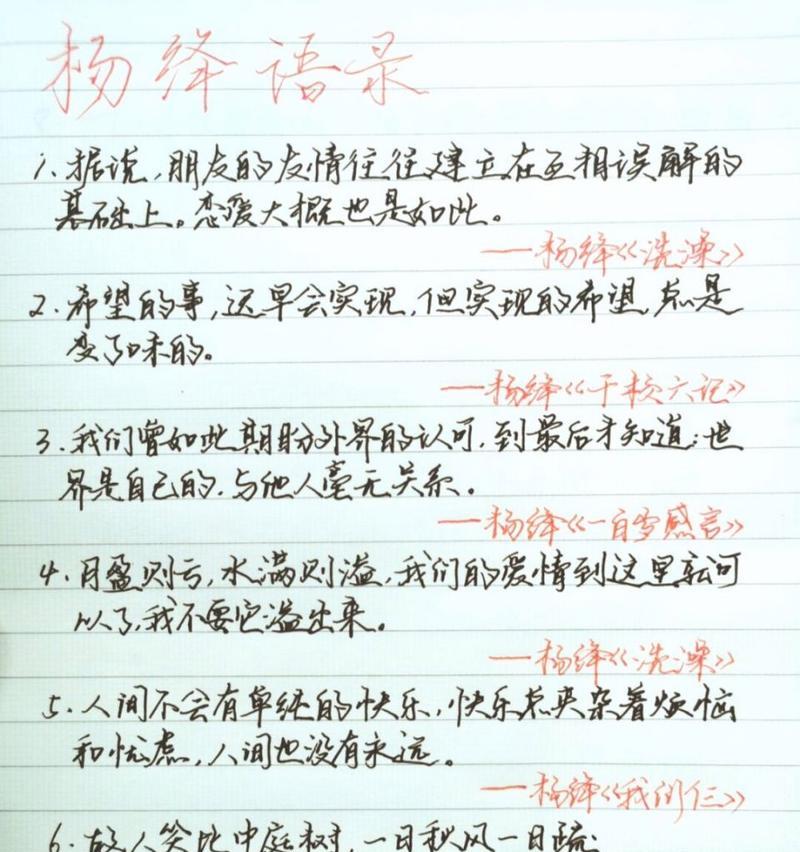 杨绛语录
1.据说,朋友的友情往往建立在互相误解的
基础上。恋爱大概也是如此。
——杨绛《洗澡》
2.希望的事,迟早会实现,但实现的希望,总是
变了味的。
——杨绛《干校六记》
3.我们曾如此期盼外界的认可,到最后才知道:世
界是自己的,与他人毫无关系。
——杨绛《一百岁感言》
4.月盈则亏,水满则溢,我们的爱情到这里就可
以了,我不要它溢出来。
——杨绛《洗澡》
5.人间不会有单纯的快乐,快乐总夹杂着烦恼
和忧虑,人间也没有永远。
——杨绛《我们仨》
6.故人笑比中庭树,一日秋风一日疏